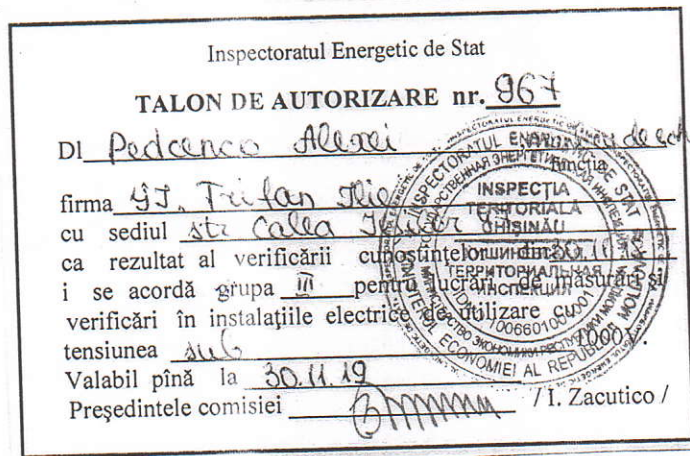 Inspectoratul Energetic de Stat
TALON DE AUTORIZARE nr. 967
Dl Pedcenco Alexei
firma Trifan Ilie
cu sediul str Calea
ca rezultat al verificării cunoştinţelor din 30.11
i se acordă grupa III pentru lucrări de măsurări şi
verificări în instalaţiile electrice de utilizare cu
tensiunea sub 1000 v.
Valabil pînă la 30.11.19
Preşedintele comisiei / I. Zacutico /
INSPECŢIA
TERITORIALĂ
CHIŞINĂU
ТЕРРИТОРИАЛЬНАЯ
ИНСПЕКЦИЯ
INSPECTORATUL ENERGETIC DE STAT
ECONOMIEI AL REPUBLICII MOLDOVA